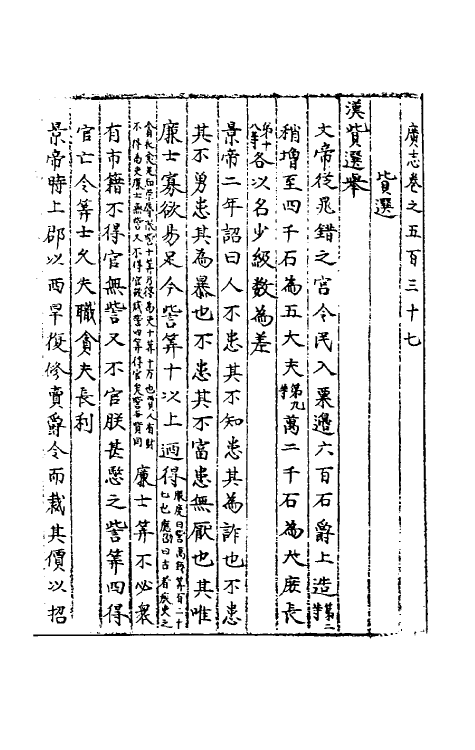 廣志卷之五百三十七
貲選
漢貲選舉
文帝從晁錯之官令民入粟邊六百石爵上造第二等
稍增至四千石為五大夫第九等萬二千石為大庶長
第十八等各以名少級數為差
景帝二年詔曰人不患其不知患其為詐也不患
其不勇患其為暴也不患其不富患無厭也其唯
廉士寡欲易足今訾筭十以上迺得服度曰訾萬錢筭百二十七也應劭曰古者疾吏之
貪衣食足知榮辱限訾十筭乃得為吏十筭十萬也賈人有財不得為吏廉士無訾又不得官故減訾四筭得官矣訾與貲同廉士筭不必衆
有市籍不得官無訾又不官朕甚愍之訾筭四得
官亡令筭士久失職貪夫長利
景帝時上郡以西旱復修賣爵令而裁其價以招